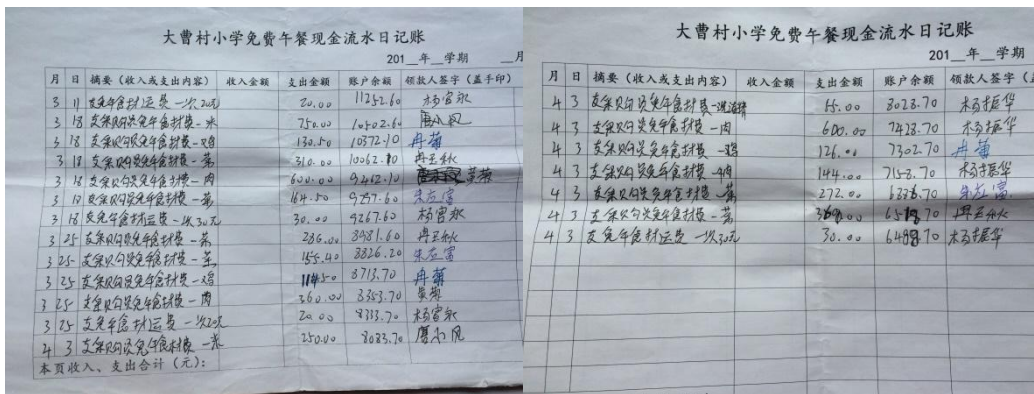 大曹村小学免费午餐现金流水日记账
201__年__学期 __月
月 日 摘要（收入或支出内容） 收入金额 支出金额 账户余额 领款人签字（盖手印）
3 11 支免午食材运费一次20元 20.00 11252.60 杨富永
3 18 支采购免午食材费－米 750.00 10502.60 廖小凤
3 18 支采购免午食材费－鸡 130.50 10372.10 冉菊
3 18 支采购免午食材费－菜 310.00 10062.10 冉玉秋
3 18 支采购免午食材费－肉 600.00 9462.10 黄菊
3 18 支采购免午食材费－菜 164.50 9297.60 朱左富
3 18 支免午食材运费一次30元 30.00 9267.60 杨富永
3 25 支采购免午食材费－菜 286.00 8981.60 冉玉秋
3 25 支采购免午食材费－菜 155.40 8826.20 朱左富
3 25 支采购免午食材费－鸡 8713.70 冉菊
3 25 支采购免午食材费－肉 360.00 8353.70 黄菊
3 25 支免午食材运费一次20元 20.00 8333.70 杨富永
4 3 支采购免午食材费－米 250.00 8083.70 廖小凤
本页收入、支出合计（元）：
大曹村小学免费午餐现金流水日记账
201__年__学期
月 日 摘要（收入或支出内容） 收入金额 支出金额 账户余额 领款人签字（盖
4 3 支采购免午食材费 55.00 8028.70 杨振华
4 3 支采购免午食材费－肉 600.00 7428.70 杨振华
4 3 支采购免午食材费－鸡 126.00 7302.70 冉菊
4 3 支采购免午食材费－肉 144.00 7158.70 杨振华
4 3 支采购免午食材费－菜 272.00 朱左富
4 3 支采购免午食材费－菜 冉玉秋
4 3 支免午食材运费一次30元 30.00 杨振华